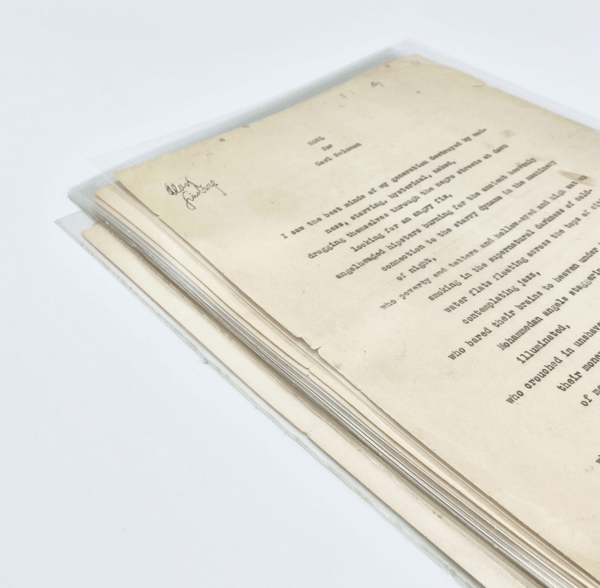 HOWL
for
Carl Solomon
Allen
Ginsberg
I saw the best minds of my generation destroyed by mad-
ness, starving, hysterical, naked,
dragging themselves through the negro streets at dawn
looking for an angry fix,
angelheaded hipsters burning for the ancient heavenly
connection to the starry dynamo in the machinery
of night,
who poverty and tatters and hollow-eyed and high sat
smoking in the supernatural darkness of cold-
water flats floating across the tops of
contemplating jazz,
who bared their brains to heaven under
Mohammedan angels staggering
illuminated,
who crouched in unshaven
their money
of